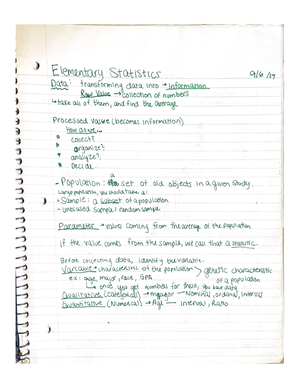 Elementary Statistics 9/6/17
Data: transforming data into → Information
Raw Value → collection of numbers
↳ take all of them, and find the average
Processed value (becomes information)
how do we...
* collect?
* organize?
* analyze?
* Decide...
- Population: a set of old objects in a given study.
Large population, you should take a:
- Sample: a subset of a population
- Unbiased sample: random sample
Parameter → values coming from the average of the population
if the value comes from the sample, we call that a statistic.
Before collecting data, identify the variable.
Variable → characteristic of the population → generic characteristic of a population
ex: age, major, race, GPA
↳ once you get numbers for these, you have data
Qualitative (Categorical) → major — Nominal, ordinal, interval
Quantitative (Numerical) → Age — interval, Ratio